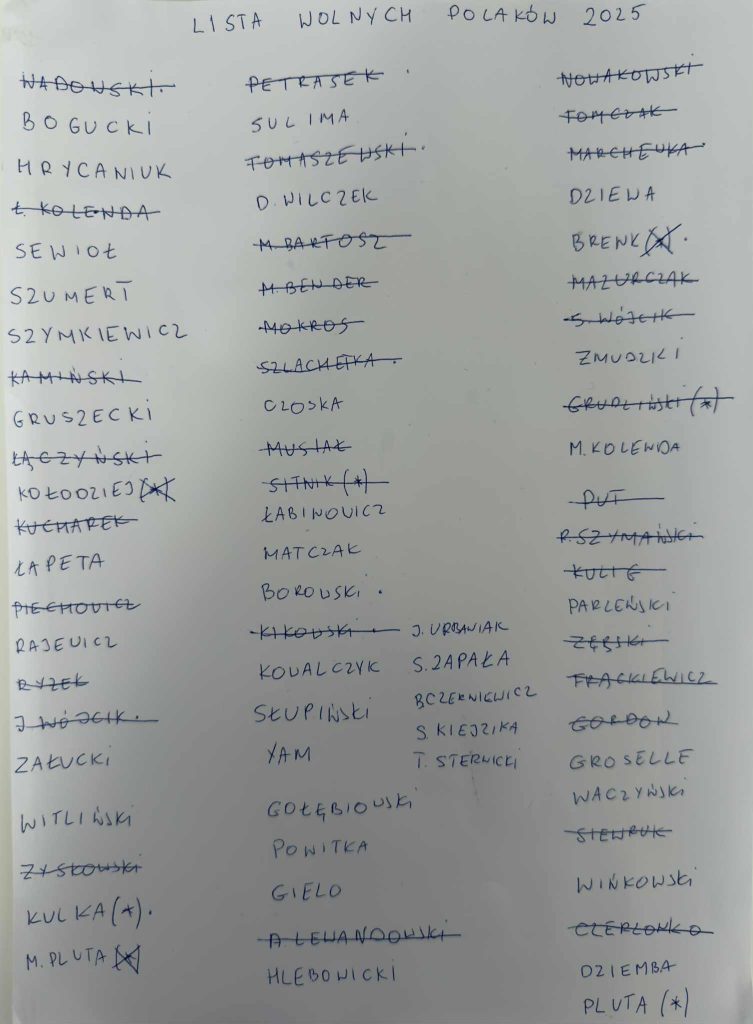 LISTA WOLNYCH POLAKÓW 2025
WADOWSKI.
BOGUCKI
HRYCANIUK
Ł. KOLENDA
SEWIOŁ
SZUMERT
SZYMKIEWICZ
KAMIŃSKI
GRUSZECKI
ŁĄCZYŃSKI
KOŁODZIEJ (*)
KUCHAREK
ŁAPETA
PIECHOWICZ
RAJEWICZ
RYŻEK
J. WÓJCIK.
ZAŁUCKI
WITLIŃSKI
ZYSKOWSKI
KULKA (*).
M. PLUTA (*)
PETRASEK .
SULIMA
TOMASZEWSKI.
D. WILCZEK
M. BARTOSZ
M. BENDER
MOKROS
SZLACHETKA.
CZOSKA
MUSIAŁ
SITNIK (*)
ŁABINOWICZ
MATCZAK
BOROWSKI .
KIKOWSKI .
KOWALCZYK
SŁUPIŃSKI
YAM
GOŁĘBIOWSKI
POWITKA
GIELO
A LEWANDOWSKI
HLEBOWICKI
J. URBANIAK
S. ZAPAŁA
B CZERNIEWICZ
S. KIEJZIKA
T. STERNICKI
NOWAKOWSKI
TOMCZAK
MARCHEWKA.
DZIEWA
BRENK (*) .
MAZURCZAK
S. WÓJCIK
ZMUDZKI
GRUDZIŃSKI (*)
M. KOLENDA
PUT
P. SZYMAŃSKI
KULIG
PARZEŃSKI
ZĘBSKI
FRĄCKIEWICZ
GORDON
GROSELLE
WACZYŃSKI
SIEWRUK
WIŃKOWSKI
CZERLONKO
DZIEMBA
PLUTA (*)